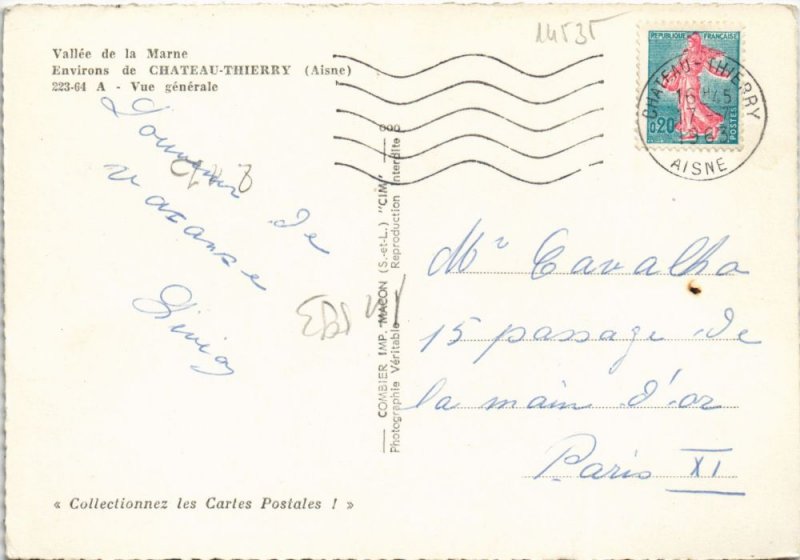 Vallée de la Marne
Environs de CHATEAU-THIERRY (Aisne)
223-64 A - Vue générale
14535
REPUBLIQUE FRANÇAISE
0,20
POSTES
CHATEAU-THIERRY
16 H45
1963
AISNE
Souvenir de
vacance
COMBIER IMP. MACON (S.-et-L.) "CIM"
Photographie Véritable Reproduction Interdite
Mr Cavalho
15 passage de
la main d'or
Paris XI
« Collectionnez les Cartes Postales ! »